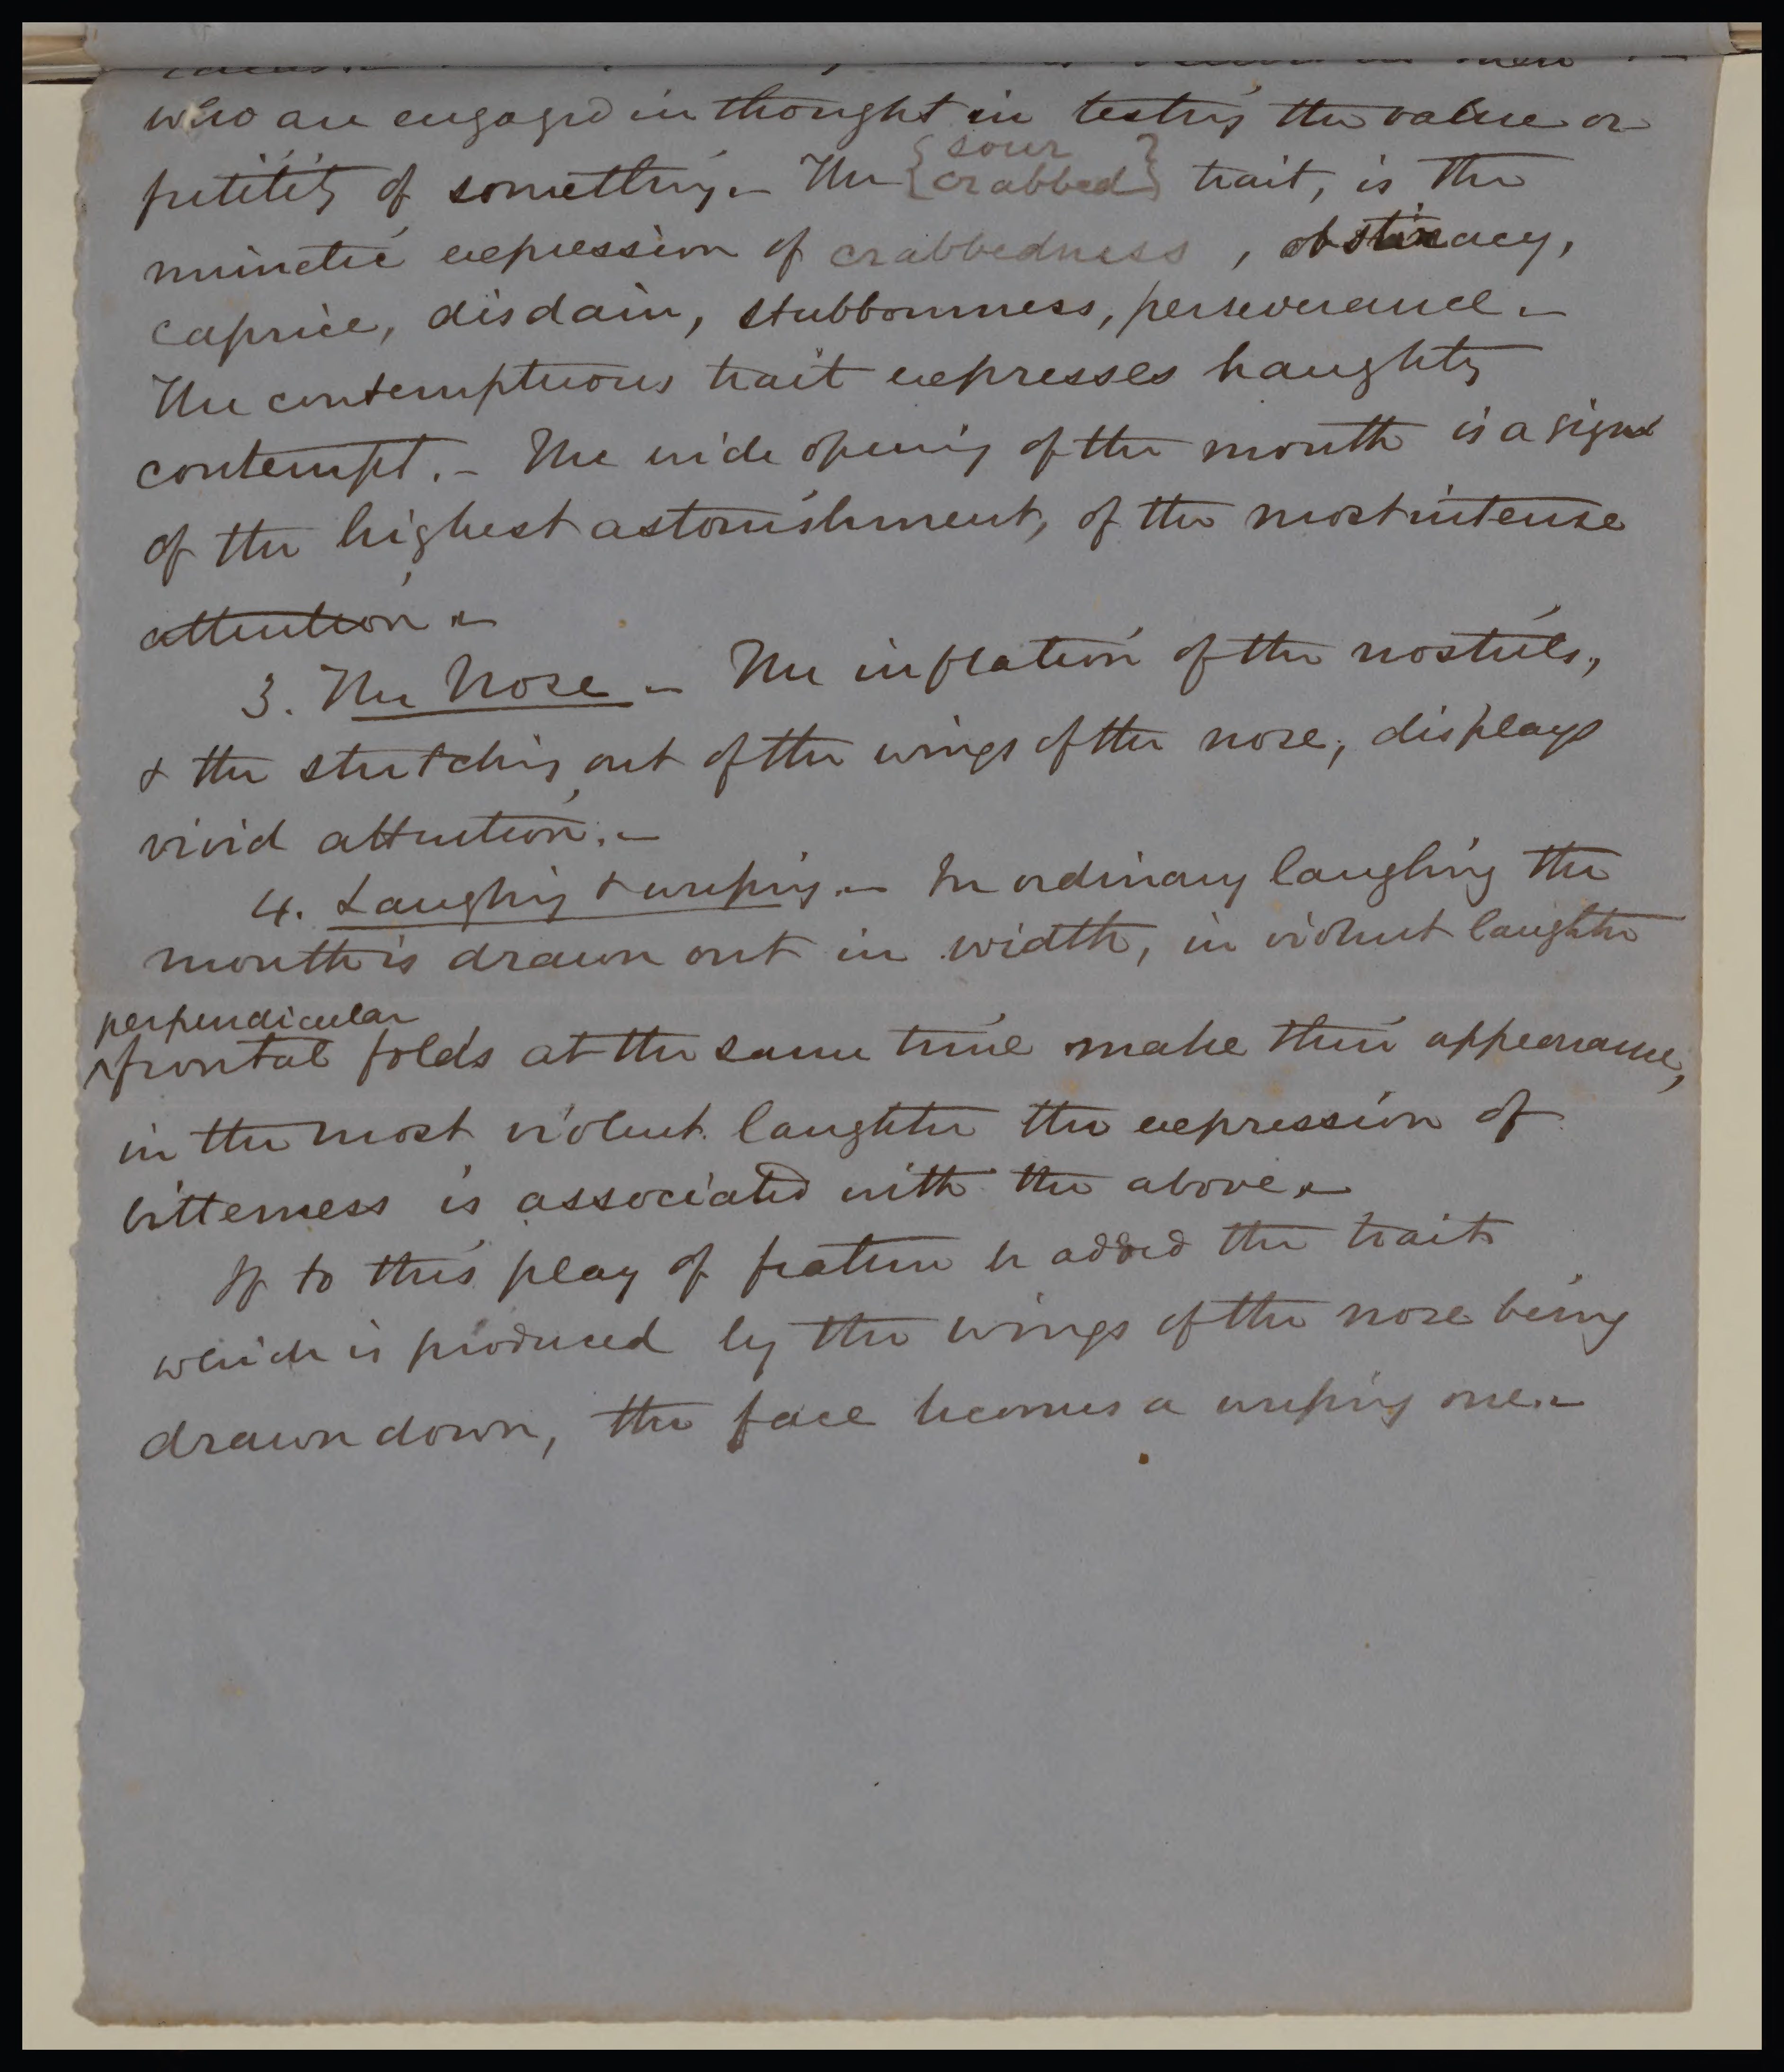 who are engaged in thought in testing the value or
futility of something. – The {sour
crabbed} trait, is the
mimetic expression of crabbedness, obstinacy,
caprice, disdain, stubbornness, perseverance. –
The contemptuous trait expresses haughty
contempt. – The wide opening of the mouth is a sign
of the highest astonishment, of the most intense
attention. –
3. The Nose – The inflation of the nostrils,
& the stretching out of the wings of the nose, displays
vivid attention. –
4. Laughing & weeping. – In ordinary laughing the
mouth is drawn out in width, in violent laughter
perpendicular
^frontal folds at the same time make their appearance,
in the most violent laughter the expression of
bitterness is associated with the above. –
If to this play of feature be added the trait
which is produced by the wings of the nose being
drawn down, the face becomes a weeping one. –